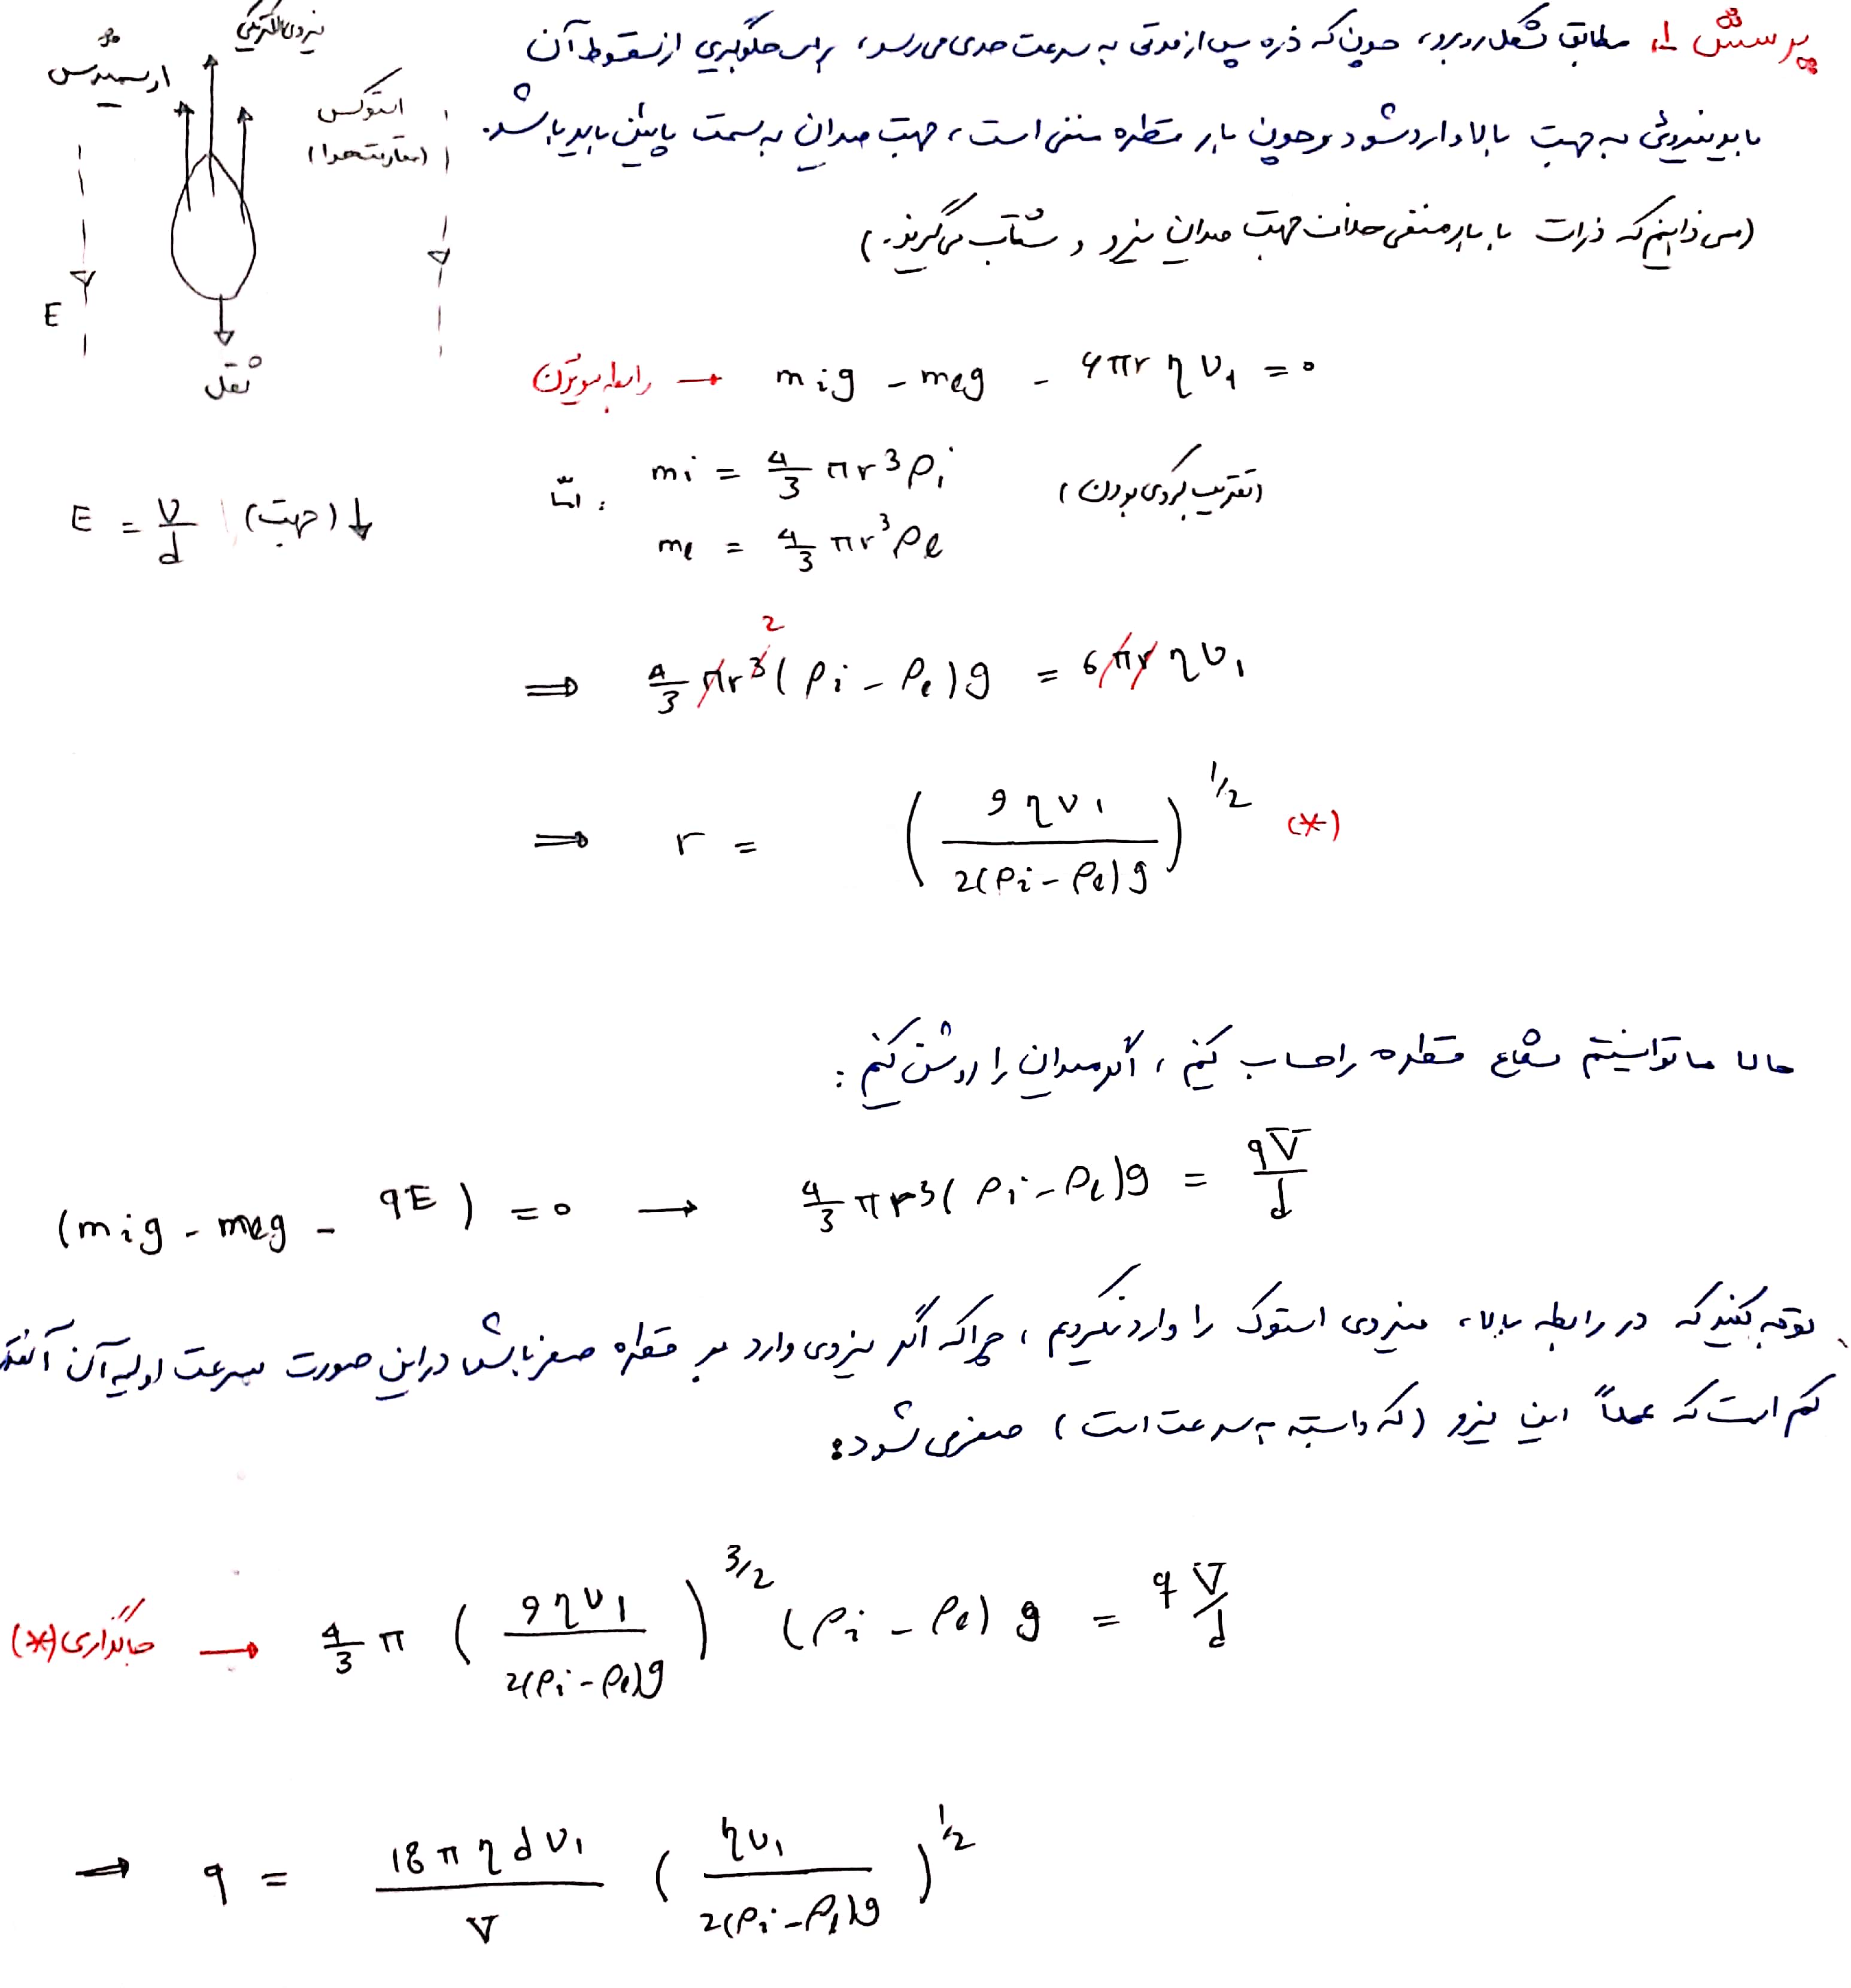 پرسش ۱، مطابق شکل روبرو، چون که ذره پس از مدتی به سرعت حدی می‌رسد، برای جلوگیری از سقوط آن
باید نیروئی به جهت بالا وارد شود و چون بار قطره منفی است، جهت میدان به سمت پایین باید باشد.
(می‌دانیم که ذرات با بار منفی خلاف جهت میدان نیرو و شتاب می‌گیرند.)
نیروی الکتریکی
ارشمیدس
استوکس
(مقاومت هوا)
E
ثقل
رابطه نیوتن → mig - meg - 6πr η v1 = 0
اما: mi = 4/3 πr^3 ρi (تقریب کروی بودن)
me = 4/3 πr^3 ρe
E = V/d (جهت) ↓
⇒ 4/3 πr^3 2 (ρi - ρe)g = 6πr ηv1
⇒ r = (9ηv1 / 2(ρi - ρe)g)^1/2 (*)
حالا ما توانستیم شعاع قطره را حساب کنیم، اگر میدان را روشن کنیم:
(mig - meg - qE) = 0 → 4/3 πr^3(ρi - ρe)g = qV/d
توجه کنید که در رابطه بالا، نیروی استوک را وارد نکردیم، چرا که اگر نیروی وارد بر قطره صفر باشد در این صورت سرعت اولیه آن آنقدر
کم است که عملاً این نیرو (که وابسته به سرعت است) صفر می‌شود:
جاگذاری (*) → 4/3 π (9ηv1 / 2(ρi - ρe)g)^3/2 (ρi - ρe) g = q V/d
→ q = 18πηdv1 / V (ηv1 / 2(ρi - ρe)g)^1/2